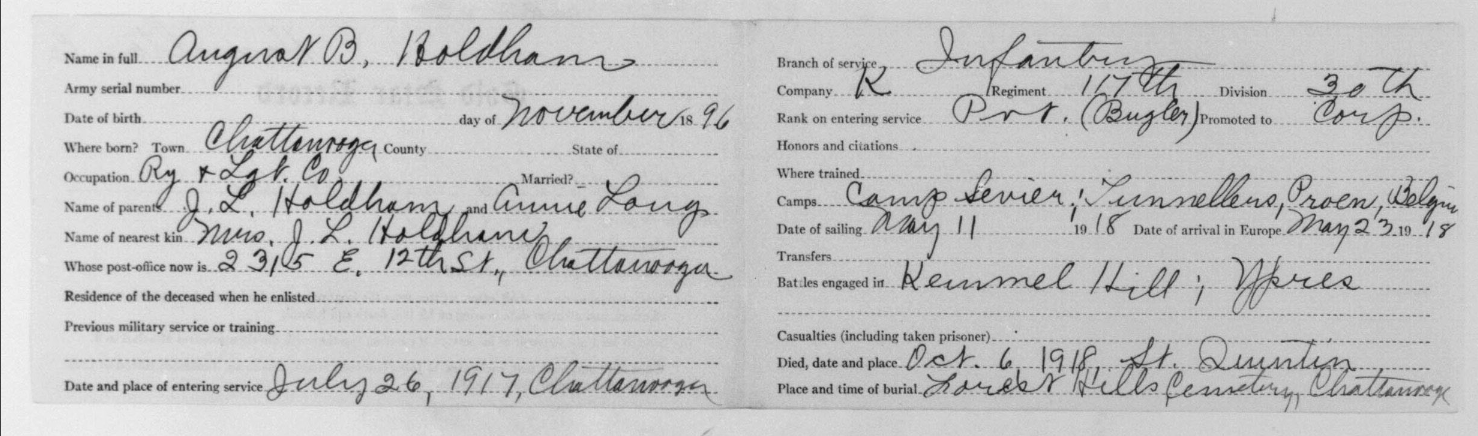 Name in full August B. Holdham
Army serial number
Date of birth day of November 18 96
Where born? Town Chattanooga County State of
Occupation Ry & Lgt. Co. Married?
Name of parents J. L. Holdham and Annie Long
Name of nearest kin Mrs. J. L. Holdham
Whose post-office now is 2315 E. 12th St., Chattanooga
Residence of the deceased when he enlisted
Previous military service or training
Date and place of entering service July 26, 1917, Chattanooga
Branch of service Infantry
Company K Regiment 117th Division 30th
Rank on entering service Pvt. (Bugler) Promoted to Corp.
Honors and citations
Where trained
Camps Camp Sevier; Tunnellers, Proen, Belgium
Date of sailing May 11 19 18 Date of arrival in Europe May 23 19 18
Transfers
Battles engaged in Kemmel Hill; Ypres
Casualties (including taken prisoner)
Died, date and place Oct. 6, 1918, St. Quentin
Place and time of burial Forest Hills Cemetery, Chattanooga